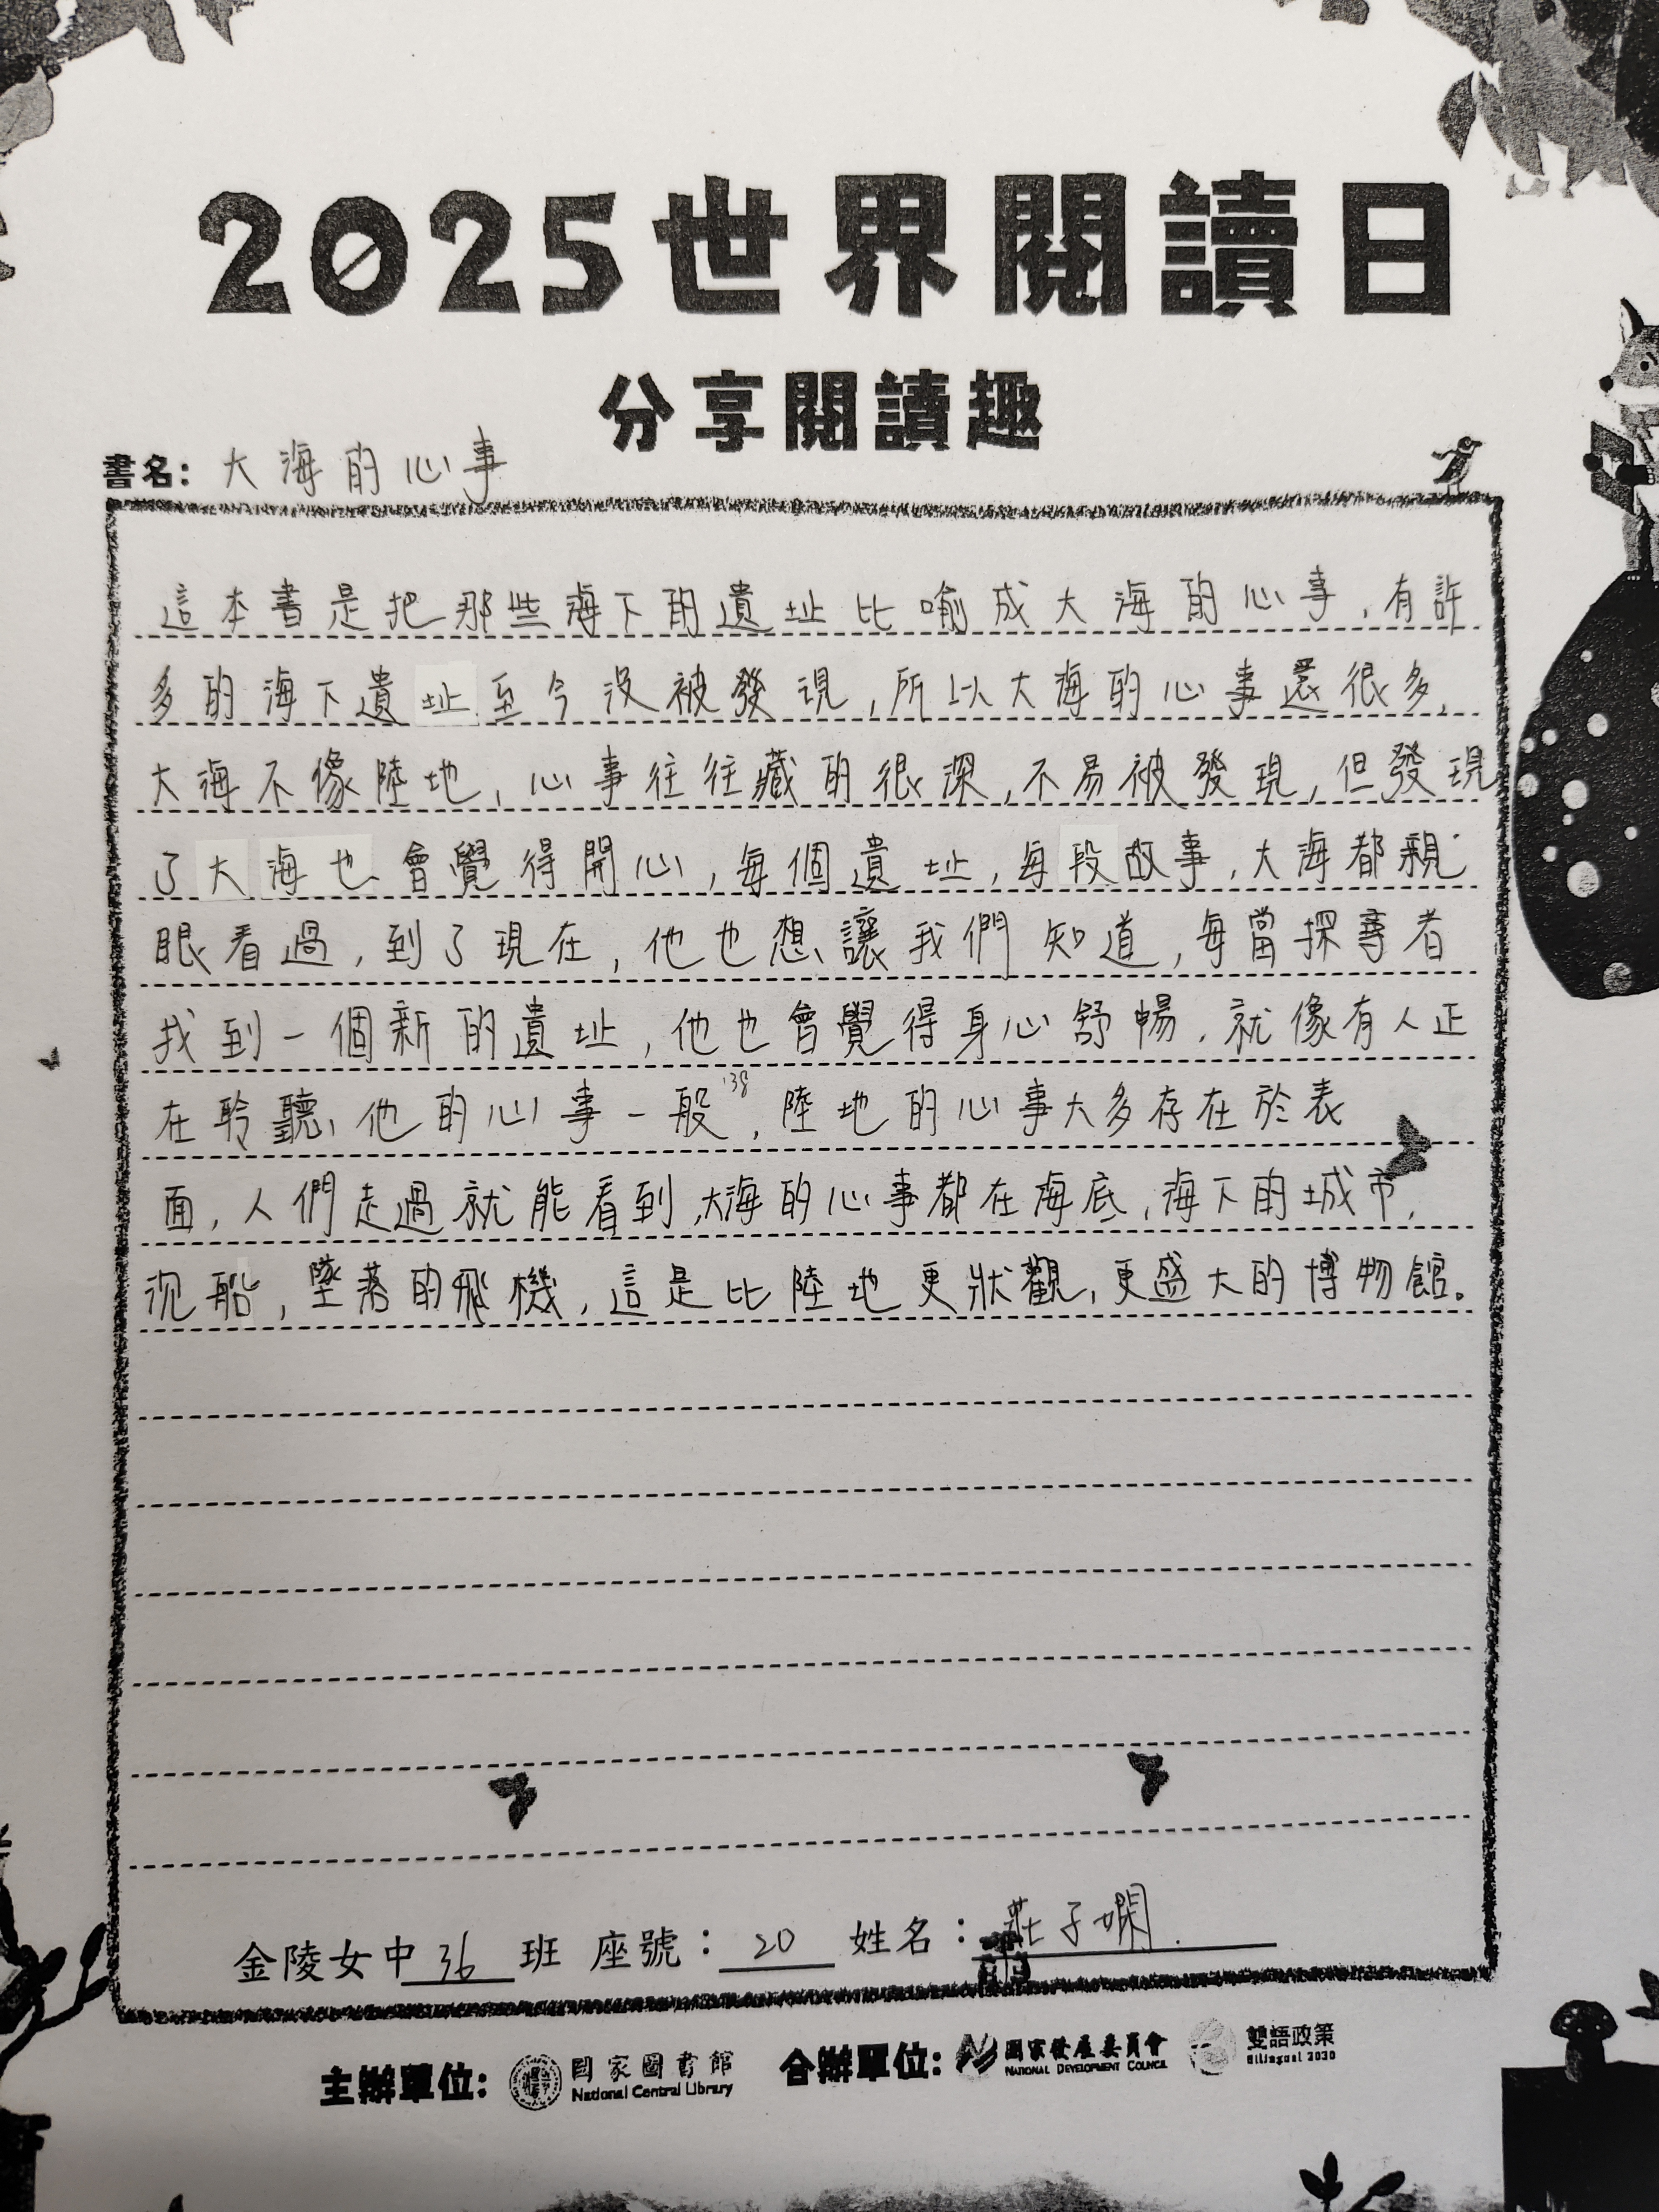 2025世界閱讀日
分享閱讀趣
書名：大海的心事
這本書是把那些海下的遺址比喻成大海的心事，有許
多的海下遺址至今沒被發現，所以大海的心事還很多，
大海不像陸地，心事往往藏的很深，不易被發現，但發現
了大海也會覺得開心，每個遺址，每段故事，大海都親
眼看過，到了現在，他也想讓我們知道，每當探尋者
找到一個新的遺址，他也會覺得身心舒暢，就像有人正
在聆聽他的心事一般138，陸地的心事大多存在於表
面，人們走過就能看到，大海的心事都在海底，海下的城市，
沉船，墜落的飛機，這是比陸地更狀觀，更盛大的博物館。
金陵女中36班 座號：20 姓名：莊子嫻
主辦單位：國家圖書館 National Central Library 合辦單位：國家發展委員會 NATIONAL DEVELOPMENT COUNCIL 雙語政策 Bilingual 2030